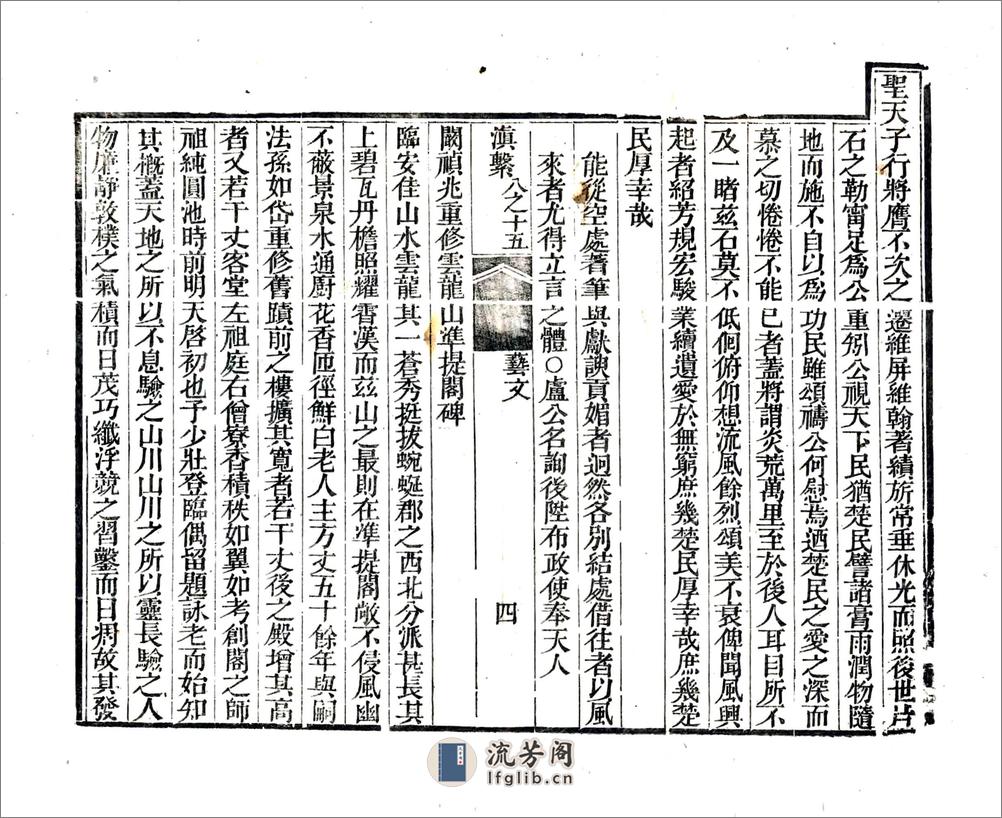 聖天子行將膺不次之遷維屏維翰著績旂常垂休光而照後世片
石之勒甯足為公重矧公視天下民猶楚民譬諸膏雨潤物隨
地而施不自以為功民雖頌禱公何慰焉迺楚民之愛之深而
慕之切惓惓不能已者蓋將謂炎荒萬里至於後人耳目所不
及一睹茲石莫不低佪俯仰想流風餘烈頌美不衰俾聞風興
起者紹芳規宏駿業續遺愛於無窮庶幾楚民厚幸哉庶幾楚
民厚幸哉
能從空處著筆與獻諛貢媚者迥然各別結處借往者以風
來者尤得立言之體○盧公名詢後陞布政使奉天人
滇繫 八之十五 藝文 四
闞禎兆重修雲龍山準提閣碑
臨安佳山水雲龍其一蒼秀挺拔蜿蜒郡之西北分派甚長其
上碧瓦丹檐照耀霄漢而茲山之最則在準提閣敞不侵風幽
不蔽景泉水通廚花香匝徑鮮白老人主方丈五十餘年與嗣
法孫如岱重修舊蹟前之樓擴其寬者若干丈後之殿增其高
者又若干丈客堂左祖庭右僧寮香積秩如翼如考創閣之師
祖純圓池時前明天啓初也予少壯登臨偶留題詠老而始知
其概蓋天地之所以不息驗之山川山川之所以靈長驗之人
物龐靜敦樸之氣積而日茂巧纖浮競之習鑿而日凋故其發
流芳阁
lfglib.cn